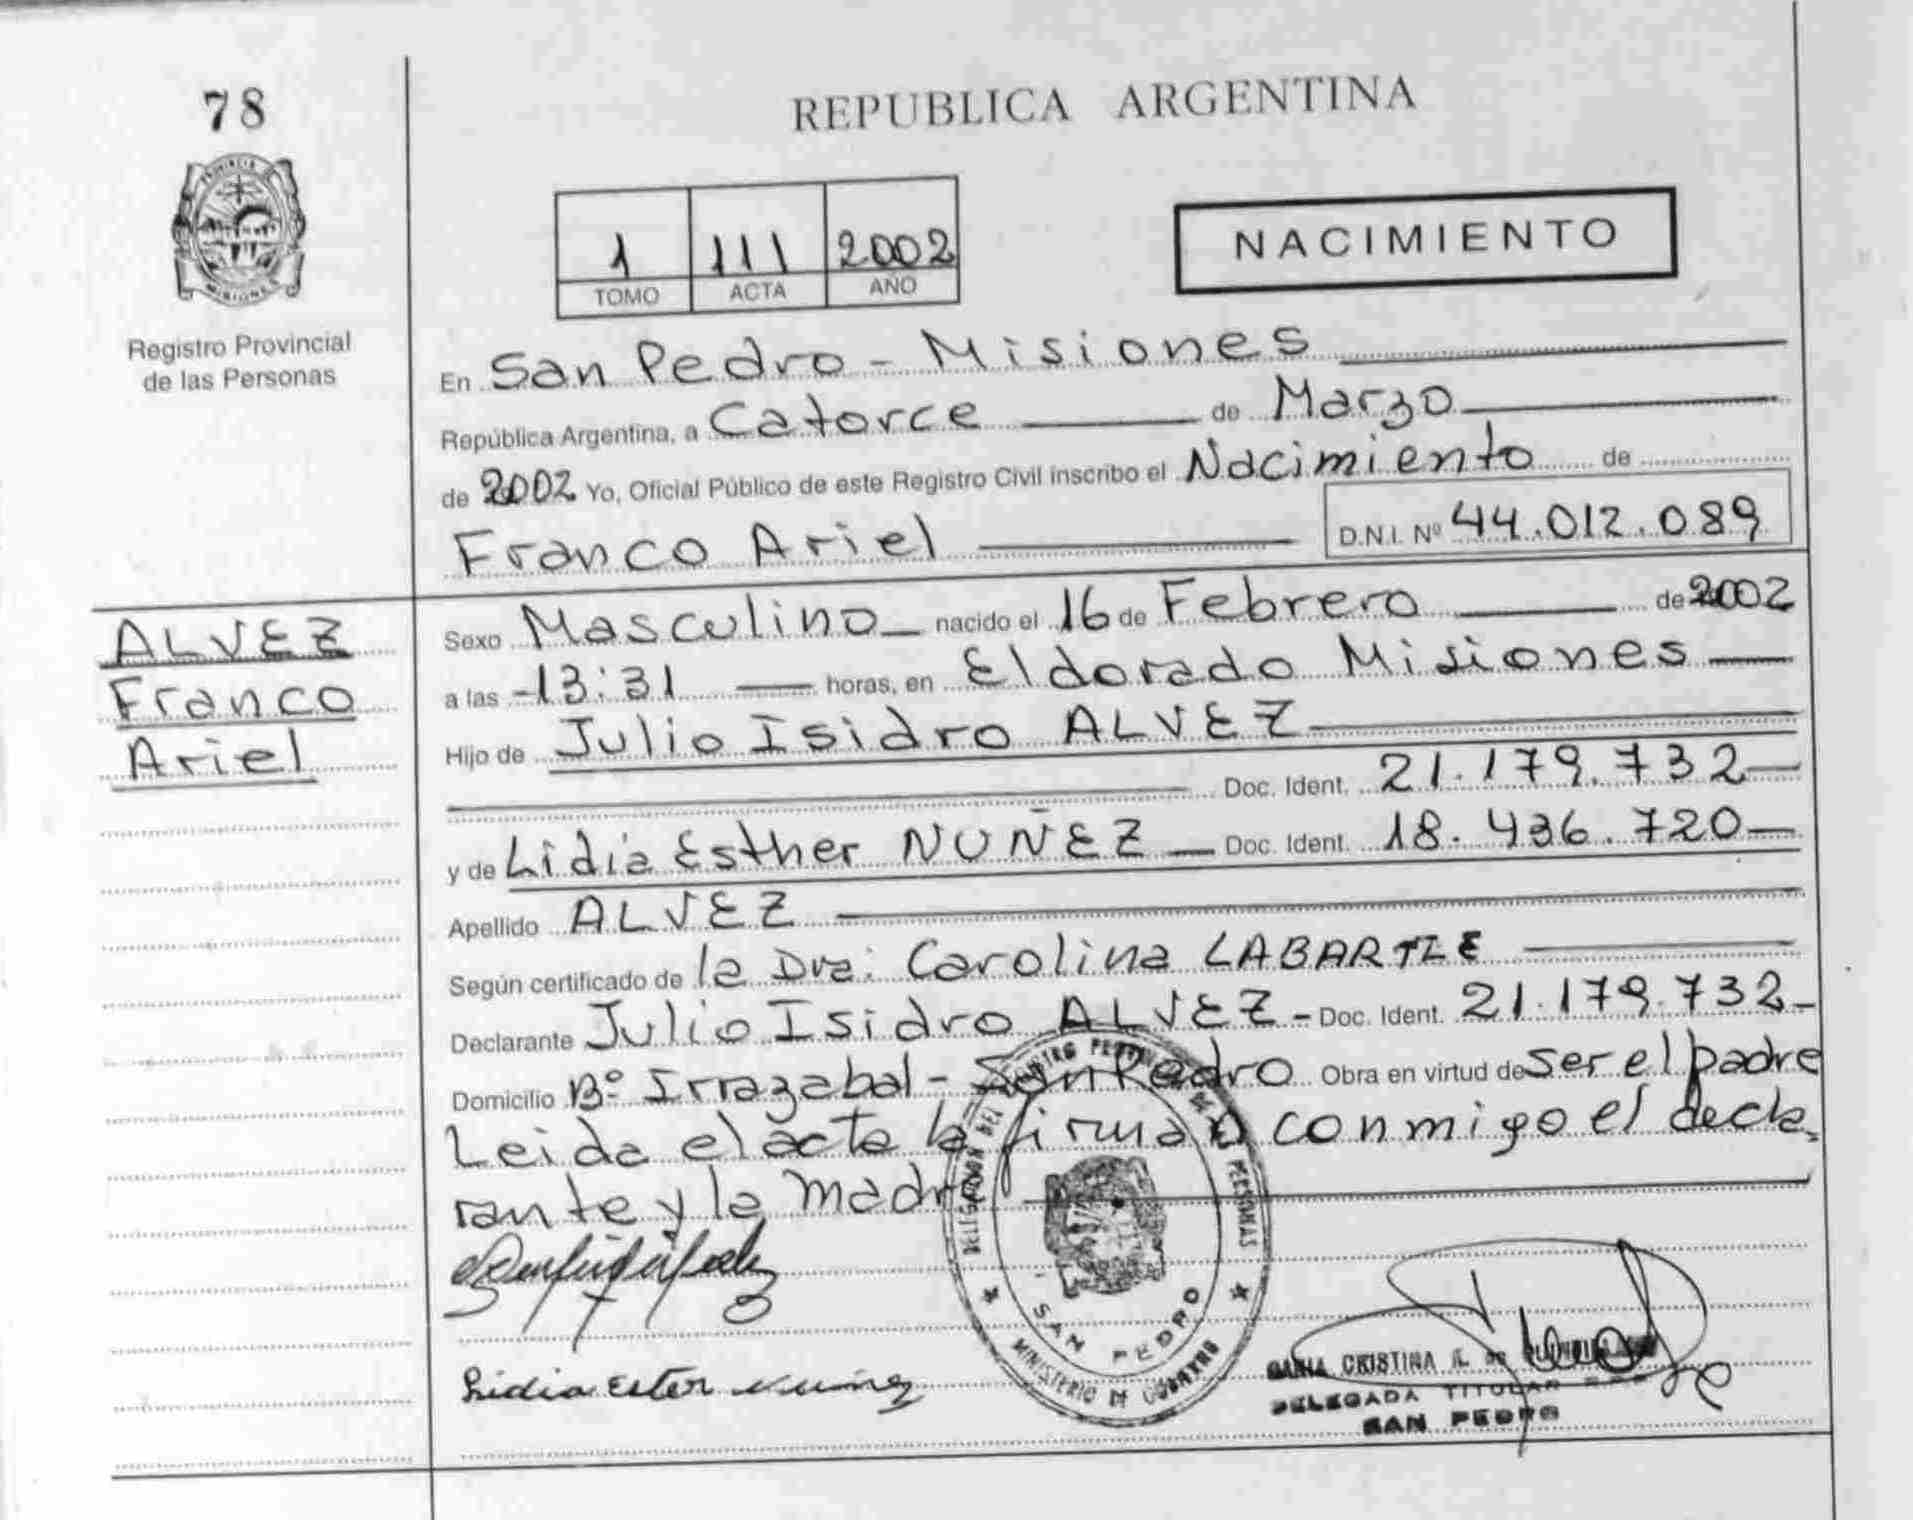 78
REPUBLICA ARGENTINA
PROVINCIA
MISIONES
Registro Provincial
de las Personas
1 111 2002
TOMO ACTA AÑO
NACIMIENTO
En San Pedro - Misiones
República Argentina, a Catorce de Marzo
de 2002 Yo, Oficial Público de este Registro Civil inscribo el Nacimiento de
Franco Ariel D.N.I. Nº 44.012.089
ALVEZ
Franco
Ariel
Sexo Masculino nacido el 16 de Febrero de 2002
a las 13:31 horas, en Eldorado Misiones
Hijo de Julio Isidro ALVEZ
Doc. Ident. 21.179.732
y de Lidia Esther NUÑEZ Doc. Ident. 18.436.720
Apellido ALVEZ
Según certificado de la Dra: Carolina LABARTIE
Declarante Julio Isidro ALVEZ - Doc. Ident. 21.179.732
Domicilio Bº Irrazabal - San Pedro Obra en virtud de ser el padre
Leida el acta la firman conmigo el decla-
rante y la madre
SAN PEDRO
MINISTERIO DE GOBIERNO
Lidia Ester Nuñez
CRISTINA
DELEGADA TITULAR
SAN PEDRO